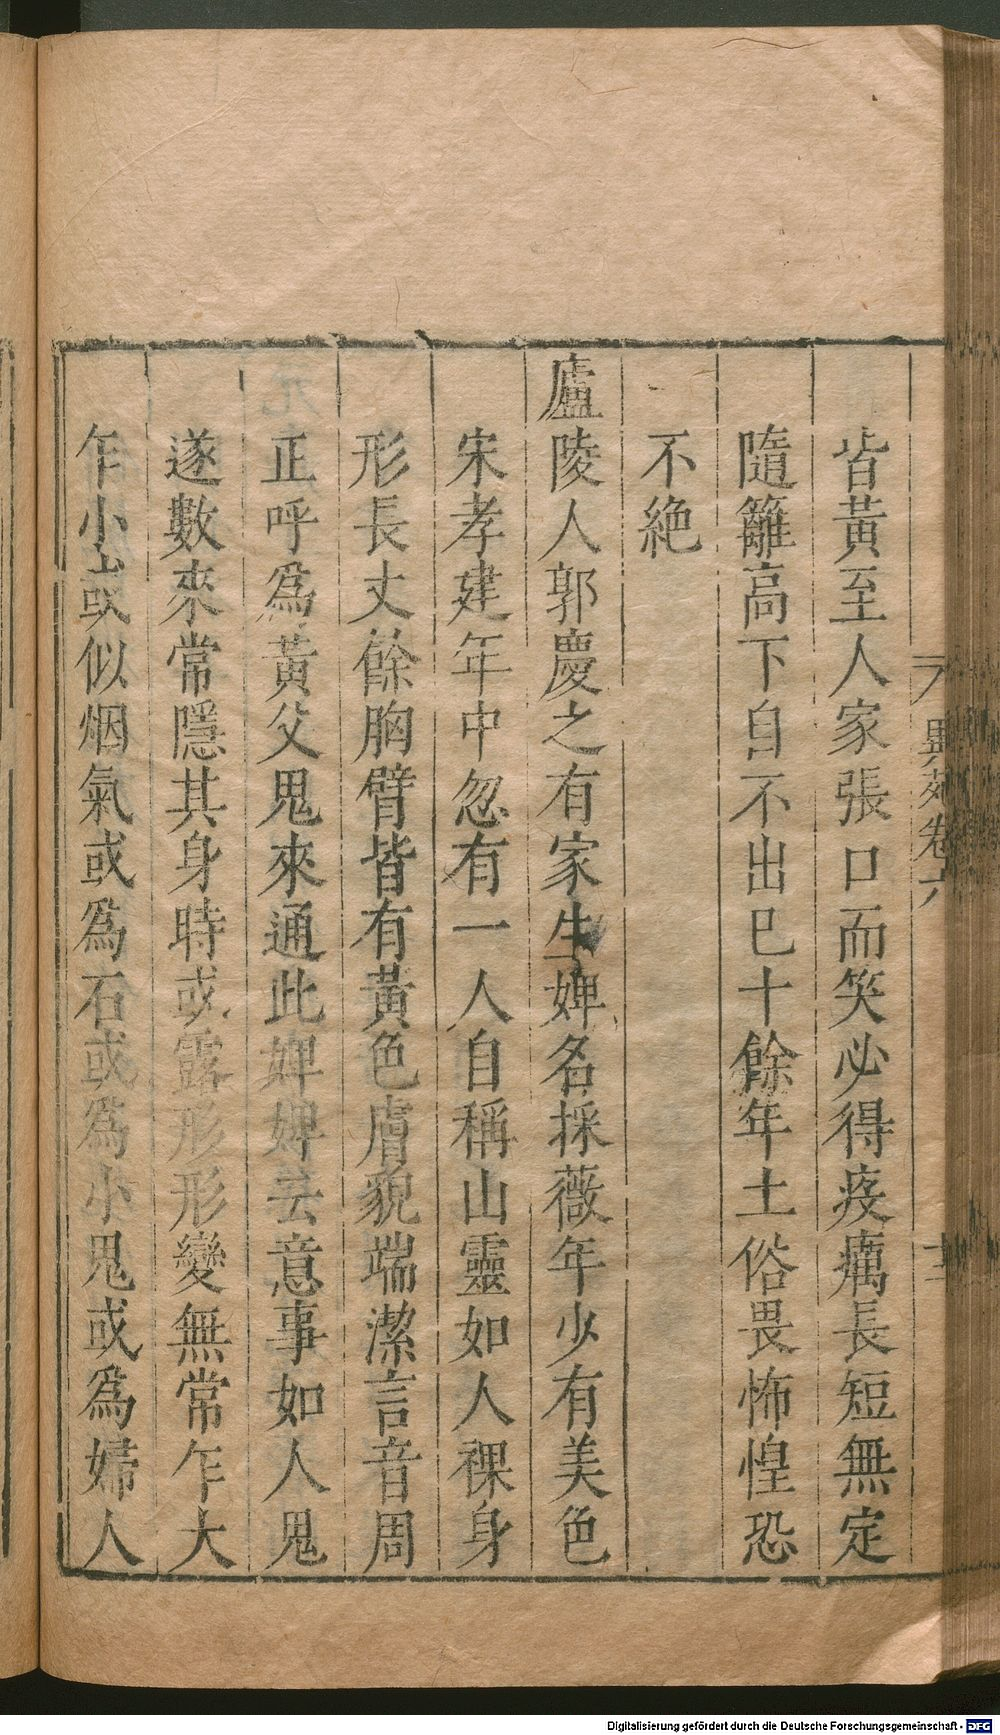 皆黃至人家張口而笑必得疫癘長短無定
隨籬高下自不出已十餘年土俗畏怖惶恐
不絶
廬陵人郭慶之有家生婢名採薇年少有美色
宋孝建年中忽有一人自稱山靈如人裸身
形長丈餘胸臂皆有黃色膚貌端潔言音周
正呼爲黃父鬼來通此婢婢云意事如人鬼
遂數來常隱其身時或露形形變無常乍大
乍小或似烟氣或爲石或爲小鬼或爲婦人
異苑卷六
十二
Digitalisierung gefördert durch die Deutsche Forschungsgemeinschaft - DFG